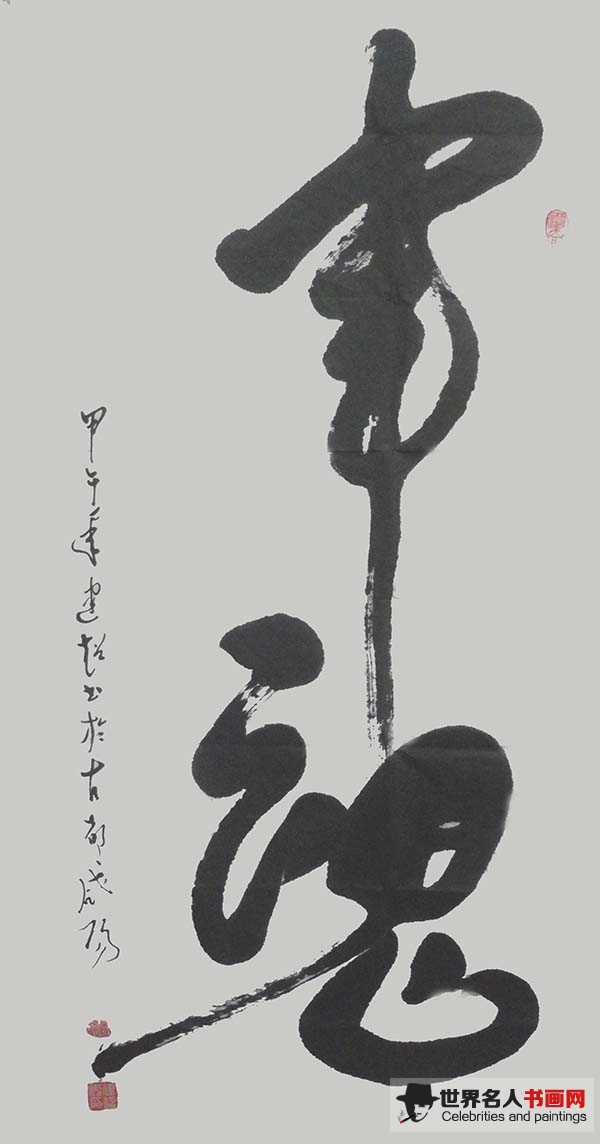 军魂
甲午年建超书於古都咸阳
世界名人书画网
Celebrities and paintings